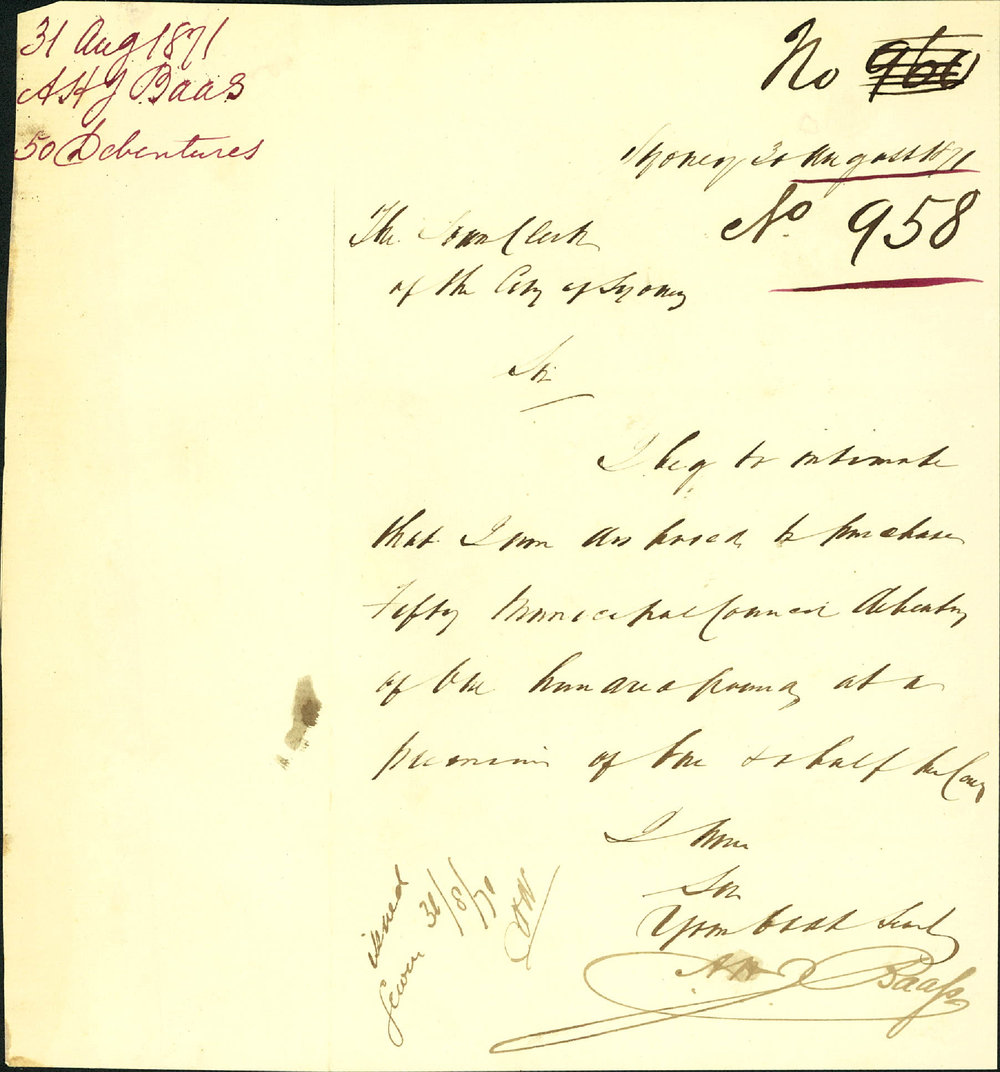 31 Aug 1871
A H J Baas
50 Debentures
No 960
Sydney 30 August 1871
No 958
The Town Clerk
of the City of Sydney
Sir
I beg to intimate
that I am disposed to purchase
Fifty Municipal Council Debentures
of One hundred pounds at a
premium of One & a half per Cent
I have
Sir
Your Obdt Servt
A H J Baass
issued
31/8/71